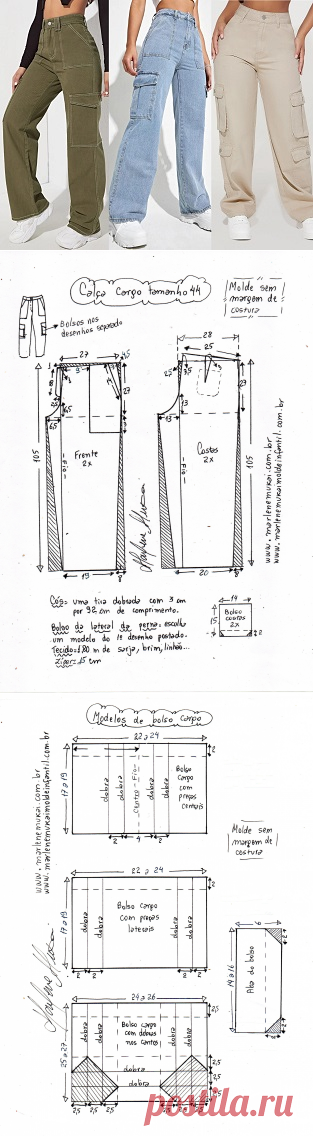 Calça Cargo tamanho 44
Molde sem
margem de
costura
Bolsos nos
desenhos separado
27
4,5
3
1
8
2,5
6,5
6,5
13
17
27
13
105
Frente
2x
Fio
19
8
28
25
2,5
3,5
13
13
27
105
Costas
2x
Fio
20
8
www.marlenemukai.com.br
www.marlenemukaimoldeinfantil.com.br
Cós= uma tira dobrada com 3 cm
por 92 cm de comprimento.
Bolso da lateral da perna= escolha
um modelo do 1º desenho postado.
Tecido=1,80 m de sarja, brim, linhão...
Zíper=15 cm
14
15
Bolso
costas
2x
2
Modelos de bolso cargo
22 a 24
17 a 19
2
dobra
dobra
Centro-Fio
dobra
dobra
Bolso
Cargo
com
pregas
centrais
2
4
2
Molde sem
margem de
costura
www.marlenemukai.com.br
www.marlenemukaimoldeinfantil.com.br
22 a 24
17 a 19
2
dobra
dobra
Bolso cargo
com pregas
laterais
dobra
dobra
2
2
2
2
6
14 a 16
Aba do bolso
2
2
24 a 26
25 a 27
2,5
dobra
dobra
Bolso cargo
com dobras
nos cantos
dobra
dobra
dobra
dobra
2,5
2,5
2,5
2,5
2,5
2,5
2,5
posila.ru